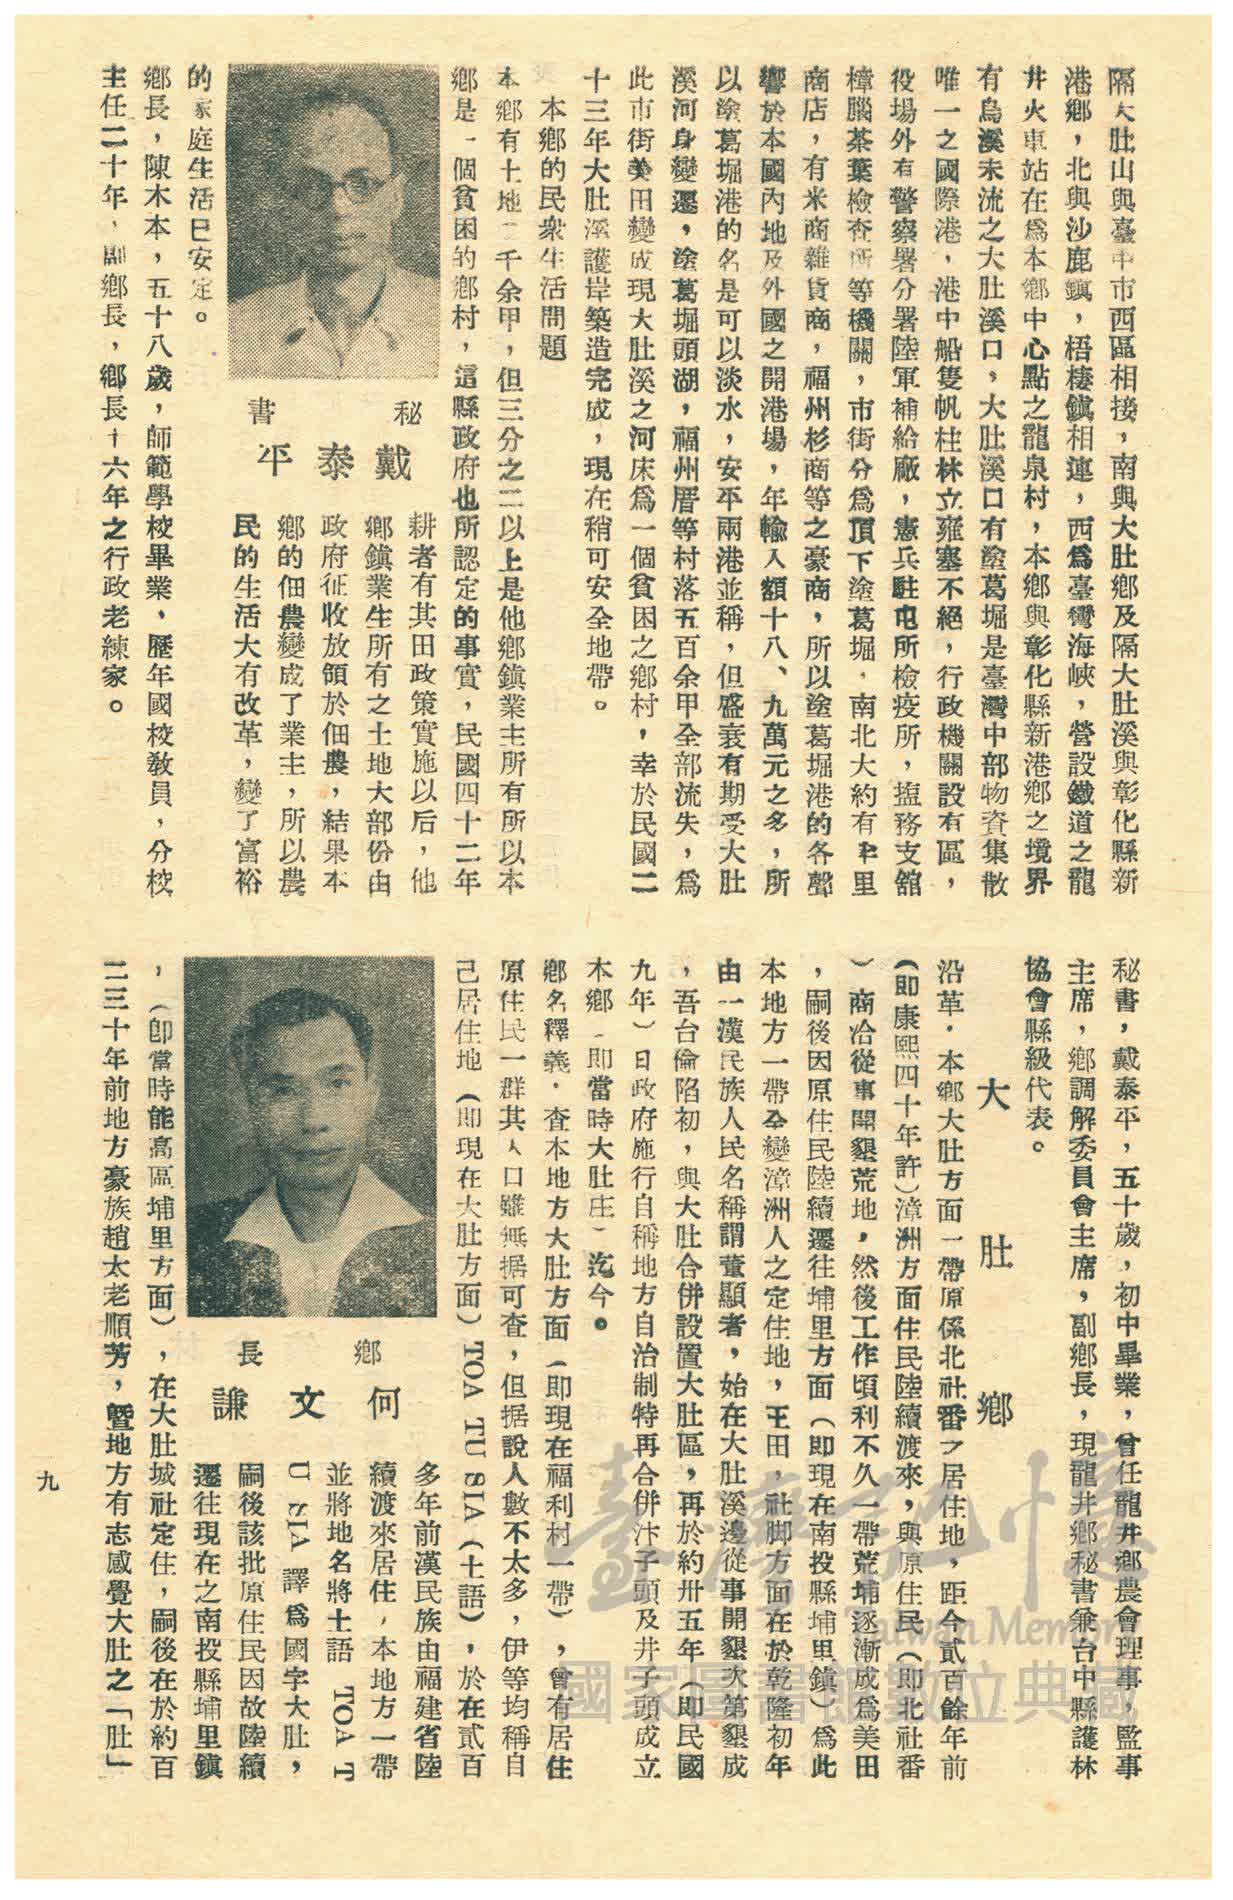 隔大肚山與臺中市西區相接，南與大肚鄉及隔大肚溪與彰化縣新
港鄉，北與沙鹿鎮，梧棲鎮相連，西爲臺灣海峽，營設鐵道之龍
井火車站在爲本鄉中心點之龍泉村，本鄉與彰化縣新港鄉之境界
有烏溪末流之大肚溪口，大肚溪口有塗葛堀是臺灣中部物資集散
唯一之國際港，港中船隻帆柱林立雍塞不絕，行政機關設有區，
役場外有警察署分署陸軍補給廠，憲兵駐屯所檢疫所，塩務支舘
樟腦茶葉檢查所等機關，市街分爲頂下塗葛堀，南北大約有半里
商店，有米商雜貨商，福州杉商等之豪商，所以塗葛堀港的各聲
響於本國內地及外國之開港場，年輸入額十八、九萬元之多，所
以塗葛堀港的名是可以淡水，安平兩港並稱，但盛衰有期受大肚
溪河身變遷，塗葛堀頭湖，福州厝等村落五百余甲全部流失，爲
此市街美田變成現大肚溪之河床爲一個貧困之鄉村，幸於民國二
十三年大肚溪護岸築造完成，現在稍可安全地帶。
本鄉的民衆生活問題
本鄉有土地二千余甲，但三分之二以上是他鄉鎮業主所有所以本
鄉是一個貧困的鄉村，這縣政府也所認定的事實，民國四十二年
秘書
戴泰平
耕者有其田政策實施以后，他
鄉鎮業生所有之土地大部份由
政府征收放領於佃農，結果本
鄉的佃農變成了業主，所以農
民的生活大有改革，變了富裕
的家庭生活已安定。
鄉長，陳木本，五十八歲，師範學校畢業，歷年國校教員，分校
主任二十年，副鄉長，鄉長十六年之行政老練家。
秘書，戴泰平，五十歲，初中畢業，曾任龍井鄉農會理事，監事
主席，鄉調解委員會主席，副鄉長，現龍井鄉秘書兼台中縣護林
協會縣級代表。
大肚鄉
沿革．本鄉大肚方面一帶原係北社番之居住地，距今貳百餘年前
（卽康熙四十年許）漳洲方面住民陸續渡來，與原住民（卽北社番
）商洽從事開墾荒地，然後工作頃利不久一帶荒埔逐漸成爲美田
，嗣後因原住民陸續遷往埔里方面（卽現在南投縣埔里鎮）爲此
本地方一帶全變漳洲人之定住地，王田，社脚方面在於乾隆初年
由一漢民族人民名稱謂董顯者，始在大肚溪邊從事開墾次第墾成
，吾台倫陷初，與大肚合併設置大肚區，再於約卅五年（卽民國
九年）日政府施行自稱地方自治制特再合併汴子頭及井子頭成立
本鄉（卽當時大肚庄）迄今。
鄉名釋義．査本地方大肚方面（卽現在福利村一帶），曾有居住
原住民一群其人口雖無据可査，但据說人數不太多，伊等均稱自
己居住地（卽現在大肚方面）TOA TU SIA（土語），於在貳百
鄉長
何文謙
多年前漢民族由福建省陸
續渡來居住，本地方一帶
並將地名將土語 TOA T
U SIA 譯爲國字大肚，
嗣後該批原住民因故陸續
遷往現在之南投縣埔里鎮
，（卽當時能高區埔里方面），在大肚城社定住，嗣後在於約百
二三十年前地方豪族趙太老順芳，曁地方有志感覺大肚之「肚」
九
臺灣記憶
Taiwan Memory
國家圖書館數位典藏